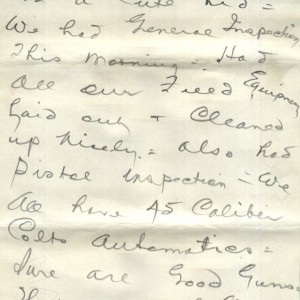 is a cute kid =
We had General Inspection
This morning - Had
All our Field Equipment
Laid out - Cleaned
up Nicely = also had
Pistol inspection = We
All have 45 Caliber
Colts Automatics =
Sure are Good Guns =